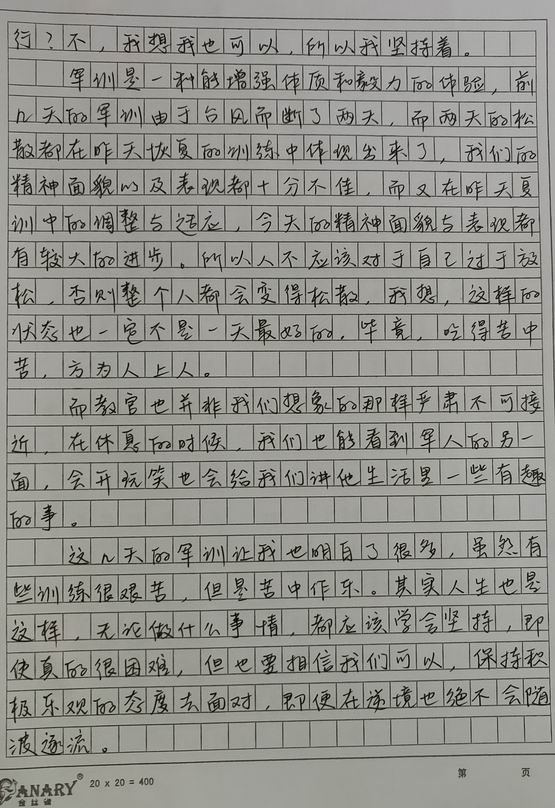 行？不，我想我也可以，所以我坚持着。
军训是一种能增强体质和毅力的体验，前
几天的军训由于台风而断了两天，而两天的松
散都在昨天恢复的训练中体现出来了，我们的
精神面貌以及表现都十分不佳，而又在昨天复
训中的调整与适应，今天的精神面貌与表现都
有较大的进步。所以人不应该对于自己过于放
松，否则整个人都会变得松散，我想，这样的
状态也一定不是一天最好的，毕竟，吃得苦中
苦，方为人上人。
而教官也并非我们想象的那样严肃不可接
近，在休息的时候，我们也能看到军人的另一
面，会开玩笑也会给我们讲他生活里一些有趣
的事。
这几天的军训让我也明白了很多，虽然有
些训练很艰苦，但是苦中作乐。其实人生也是
这样，无论做什么事情，都应该学会坚持，即
使真的很困难，但也要相信我们可以，保持积
极乐观的态度去面对，即便在逆境也绝不会随
波逐流。
CANARY® 20 x 20 = 400 第 页
金丝雀